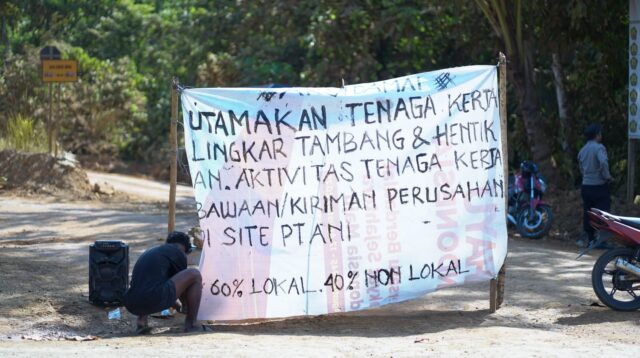 UTAMAKAN TENAGA KERJA
LINGKAR TAMBANG & HENTIK
AN. AKTIVITAS TENAGA KERJA
BAWAAN/KIRIMAN PERUSAHAN
DI SITE PT ANI
60% LOKAL. 40% NON LOKAL